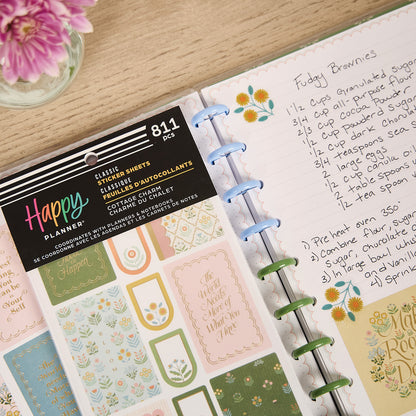 811
PCS
CLASSIC
STICKER SHEETS
CLASSIQUE
FEUILLES D'AUTOCOLLANTS
COTTAGE CHARM
CHARME DU CHALET
Happy
PLANNER
COORDINATES WITH PLANNERS & NOTEBOOKS
SE COORDONNE AVEC LES AGENDAS ET LES CARNETS DE NOTES
Happen
The World
Needs
More of
What You
Are!
can
be
Your
Self
Fudgy Brownies
1 1/2 cups granulated sugar
3/4 cup all-purpose flour
2/3 cup cocoa powder
1/2 cup powdered sugar
1/2 cup dark choc
3/4 teaspoons sea
2 large eggs
1/2 cup canola oil
2 table spoons
1/2 tea spoon
Pre heat oven 350°
2) Combine flour, sugar
sugar, chocolate
3) In large bowl
and Vanilla
4) Sprin